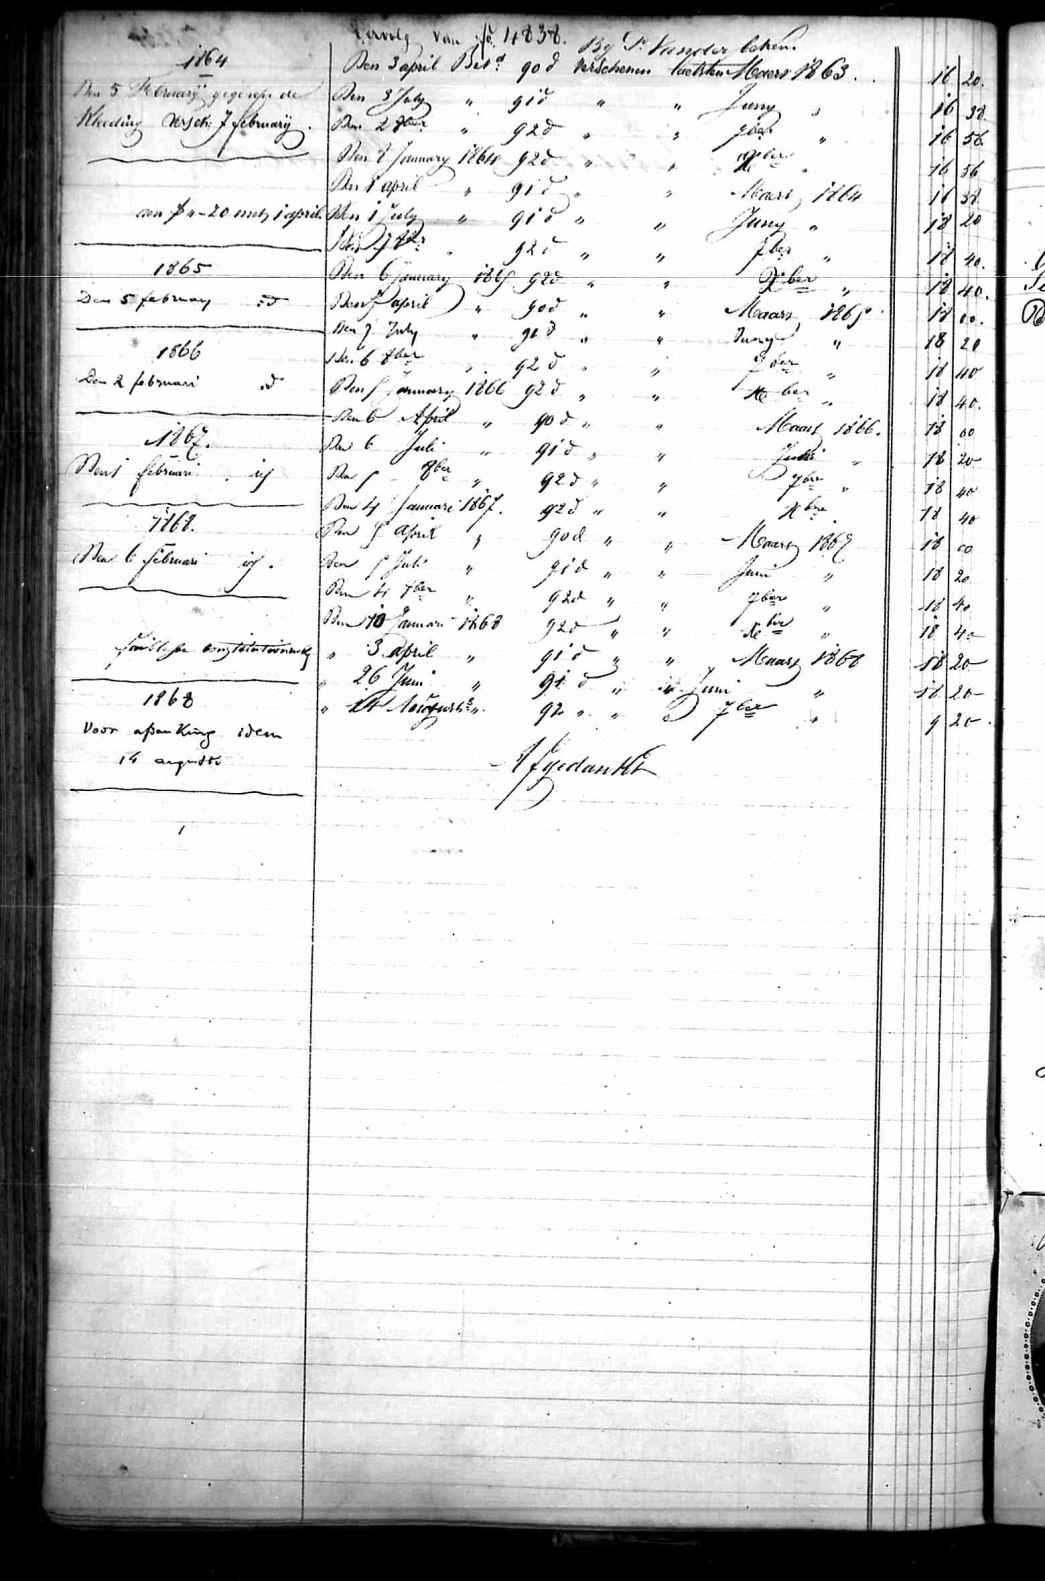 Vervolg van No 4838. By P. Vander beken.
1864
Den 5 February gegeven de
Kleeding versch. 7 february.
aan f 0-20 met 1 april
1865
Den 5 february id
1866
Den 2 februari id
1867.
Den 1 februari id
1868.
Den 6 februari id.
1868
Voor afdanking idem
14 augusti
Den 3 april Bet.d 90 d verschenen laetsten Maers 1863. 16 20.
Den 3 July " 91 d " " Juny " 16 38
Den 2 8ber " 92 d " " 7ber " 16 56
Den 8 January 1864 92 d " " Xber " 16 56
Den 1 april " 91 d " " Maers 1864 16 38
Den 1 July " 91 d " " Juny " 18 20
Den 7 8ber " 92 d " " 7ber " 18 40.
Den 6 January 1865 92 d " " Xber " 18 40.
Den 7 april " 90 d " " Maars 1865. 18 00.
Den 7 July " 91 d " " Juny " 18 20
Den 6 8ber " 92 d " " 7ber " 18 40
Den 5 January 1866 92 d " " Xber " 18 40.
Den 6 April " 90 d " " Maars 1866. 18 00
Den 6 Juli " 91 d " " Juni " 18 20
Den 5 8ber " 92 d " " 7bre " 18 40
Den 4 Januari 1867. 92 d " " Xbre 18 40
Den 5 April " 90 d " " Maars 1867 18 00
Den 5 Juli " 91 d " " Juni " 18 20
Den 4 8ber " 92 d " " 7ber " 18 40
Den 10 Januari 1868 92 d " " Xbre " 18 40
" 3 april " 91 d " " Maars 1868 18 20
" 26 Juni " 91 d " " Juni " 18 20
" 14 Augusti " 92 " " " 7ber " 9 20
Afgedankt